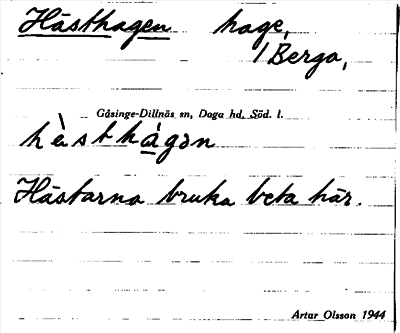 Hästhagen hage,
/Berga,
Gåsinge-Dillnäs sn, Daga hd, Söd. l.
hὰsthàgən
Hästarna bruka beta här.
Artar Olsson 1944